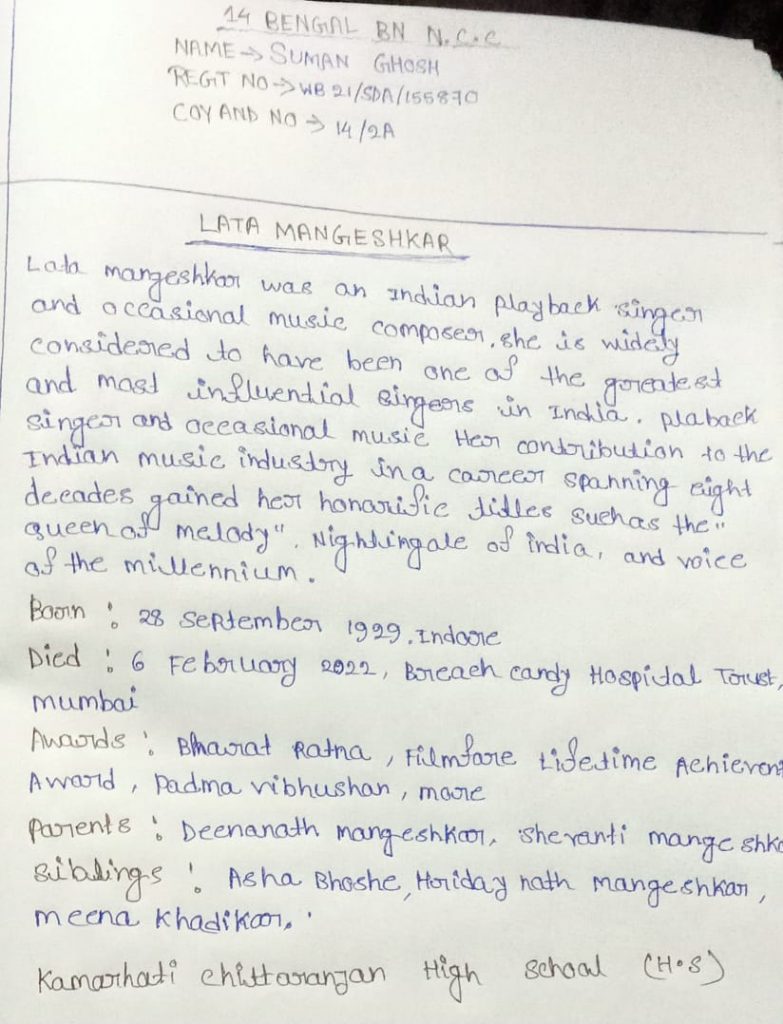 14 BENGAL BN N.C.C
NAME → SUMAN GHOSH
REGT NO → WB 21/SDA/155870
COY AND NO → 14/2A
LATA MANGESHKAR
Lata mangeshkar was an Indian playback singer
and occasional music composer. she is widely
considered to have been one of the greatest
and most influential singers in India. plaback
singer and occasional music Her contribution to the
Indian music industry in a career spanning eight
decades gained her honorific titles such as the "
queen of melody". Nightingale of india, and voice
of the millennium.
Born : 28 September 1929. Indore
Died : 6 February 2022, Breach candy Hospital Trust,
mumbai
Awards : Bharat Ratna, Filmfare Lifetime Achievem
Award, Padma vibhushan, more
Parents : Deenanath mangeshkar, shevanti mangeshka
siblings : Asha Bhoshe, Hriday nath mangeshkar,
meena khadikar.
Kamarhati chittaranjan High school (H.S)